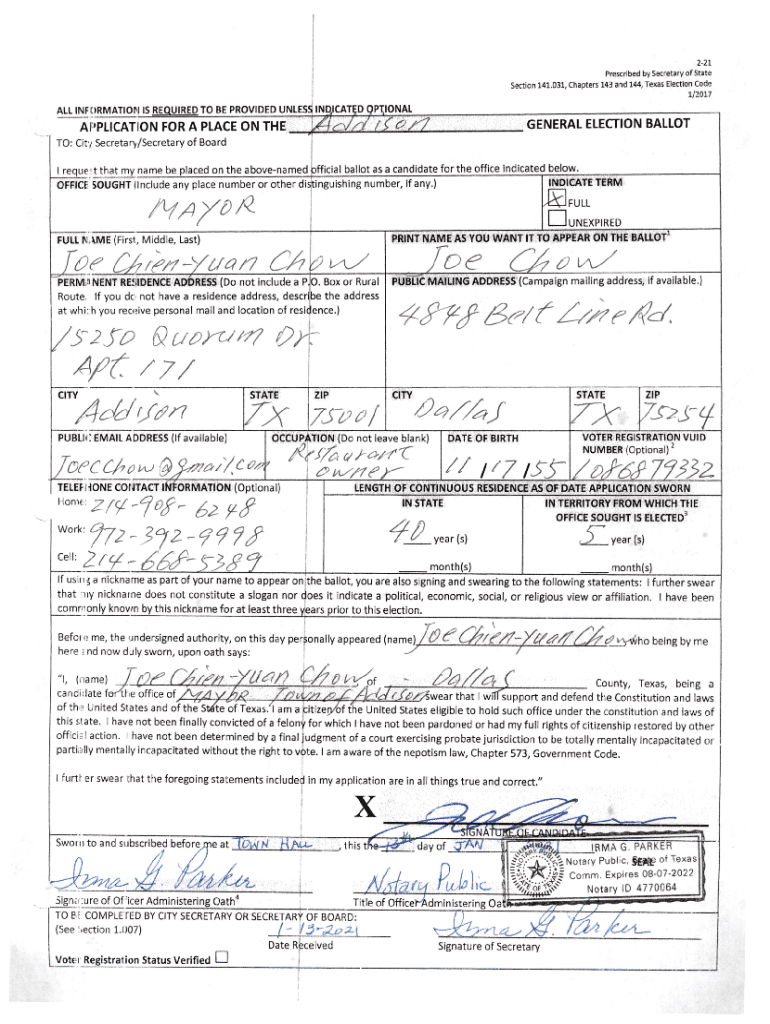 2-21
Prescribed by Secretary of State
Section 141.031, Chapters 143 and 144, Texas Election Code
1/2017
ALL INFORMATION IS REQUIRED TO BE PROVIDED UNLESS INDICATED OPTIONAL
APPLICATION FOR A PLACE ON THE Addison GENERAL ELECTION BALLOT
TO: City Secretary/Secretary of Board
I request that my name be placed on the above-named official ballot as a candidate for the office indicated below.
OFFICE SOUGHT (Include any place number or other distinguishing number, if any.) INDICATE TERM
MAYOR X FULL
UNEXPIRED
FULL NAME (First, Middle, Last) PRINT NAME AS YOU WANT IT TO APPEAR ON THE BALLOT1
Joe Chien-Yuan Chow Joe Chow
PERMANENT RESIDENCE ADDRESS (Do not include a P.O. Box or Rural PUBLIC MAILING ADDRESS (Campaign mailing address, if available.)
Route. If you do not have a residence address, describe the address
at which you receive personal mail and location of residence.)
15250 Quorum Dr. 4848 Belt Line Rd.
Apt. 171
CITY STATE ZIP CITY STATE ZIP
Addison TX 75001 Dallas TX 75254
PUBLIC EMAIL ADDRESS (If available) OCCUPATION (Do not leave blank) DATE OF BIRTH VOTER REGISTRATION VUID
NUMBER (Optional) 2
Joecchow@gmail.com Restaurant owner 11/17/55 1086879332
TELEPHONE CONTACT INFORMATION (Optional) LENGTH OF CONTINUOUS RESIDENCE AS OF DATE APPLICATION SWORN
Home: 214-908-6248 IN STATE IN TERRITORY FROM WHICH THE
OFFICE SOUGHT IS ELECTED3
Work: 972-392-9998 40 year (s) 5 year (s)
Cell: 214-668-5389 month(s) month(s)
If using a nickname as part of your name to appear on the ballot, you are also signing and swearing to the following statements: I further swear
that my nickname does not constitute a slogan nor does it indicate a political, economic, social, or religious view or affiliation. I have been
commonly known by this nickname for at least three years prior to this election.
Before me, the undersigned authority, on this day personally appeared (name) Joe Chien-Yuan Chow who being by me
here and now duly sworn, upon oath says:
"I, (name) Joe Chien-Yuan Chow of Dallas County, Texas, being a
candidate for the office of MAYOR Town of Addison swear that I will support and defend the Constitution and laws
of the United States and of the State of Texas. I am a citizen of the United States eligible to hold such office under the constitution and laws of
this state. I have not been finally convicted of a felony for which I have not been pardoned or had my full rights of citizenship restored by other
official action. I have not been determined by a final judgment of a court exercising probate jurisdiction to be totally mentally incapacitated or
partially mentally incapacitated without the right to vote. I am aware of the nepotism law, Chapter 573, Government Code.
I further swear that the foregoing statements included in my application are in all things true and correct."
X
SIGNATURE OF CANDIDATE
Sworn to and subscribed before me at TOWN HALL, this the day of JAN
IRMA G. PARKER
Notary Public, State of Texas
Comm. Expires 08-07-2022
Notary ID 4770064
Irma G. Parker Notary Public
Signature of Officer Administering Oath4 Title of Officer Administering Oath
TO BE COMPLETED BY CITY SECRETARY OR SECRETARY OF BOARD:
(See Section 1.007) 1-13-2021 Irma G. Parker
Date Received Signature of Secretary
Voter Registration Status Verified